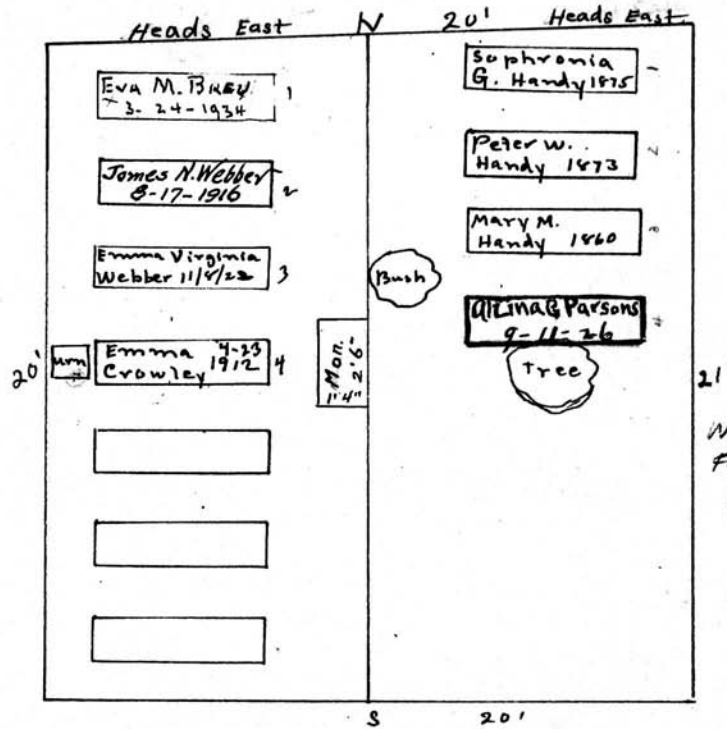 Heads East N 20' Heads East
Eva M. Brey 1
3-24-1934
James N. Webber 2
8-17-1916
Emma Virginia
Webber 11/8/22 3
urn
Emma 4-23
Crowley 1912 4
20'
Mon.
2'6"
1'4"
Bush
Sophronia 1
G. Handy 1875
Peter W. 2
Handy 1873
Mary M. 3
Handy 1860
Altina G Parsons 4
9-11-26
Tree
2'
S 20'